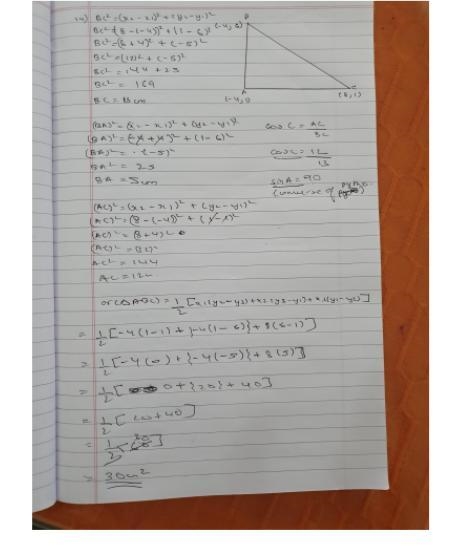 14) BC² = (x₂ - x₁)² + (y₂ - y₁)²
BC² = (8 - (-4))² + (1 - 6)²
BC² = (8 + 4)² + (-5)²
BC² = (12)² + (-5)²
BC² = 144 + 25
BC² = 169
BC = 13 cm
B
(-4, 6)
A
(-4, 1)
C
(8, 1)
(BA)² = (x₂ - x₁)² + (y₂ - y₁)²
(BA)² = (-4 + 4)² + (1 - 6)²
(BA)² = (-5)²
BA² = 25
BA = 5 cm
cos C = AC
BC
cos C = 12
13
sin A = 90
(converse of
(AC)² = (x₂ - x₁)² + (y₂ - y₁)²
(AC)² = (8 - (-4))² + (
(AC)² = (8 + 4)²
(AC)² = (12)²
AC² = 144
AC = 12
ar(△ABC) = 1/2 [x₁(y₂ - y₃) + x₂(y₃ - y₁) + x₃(y₁ - y₂)]
= 1/2 [-4(1-1) + {-4(1-6)} + 8(6-1)]
= 1/2 [-4(0) + {-4(-5)} + 8(5)]
= 1/2 [0 + {20} + 40]
= 1/2 [20 + 40]
= 1/2
= 30